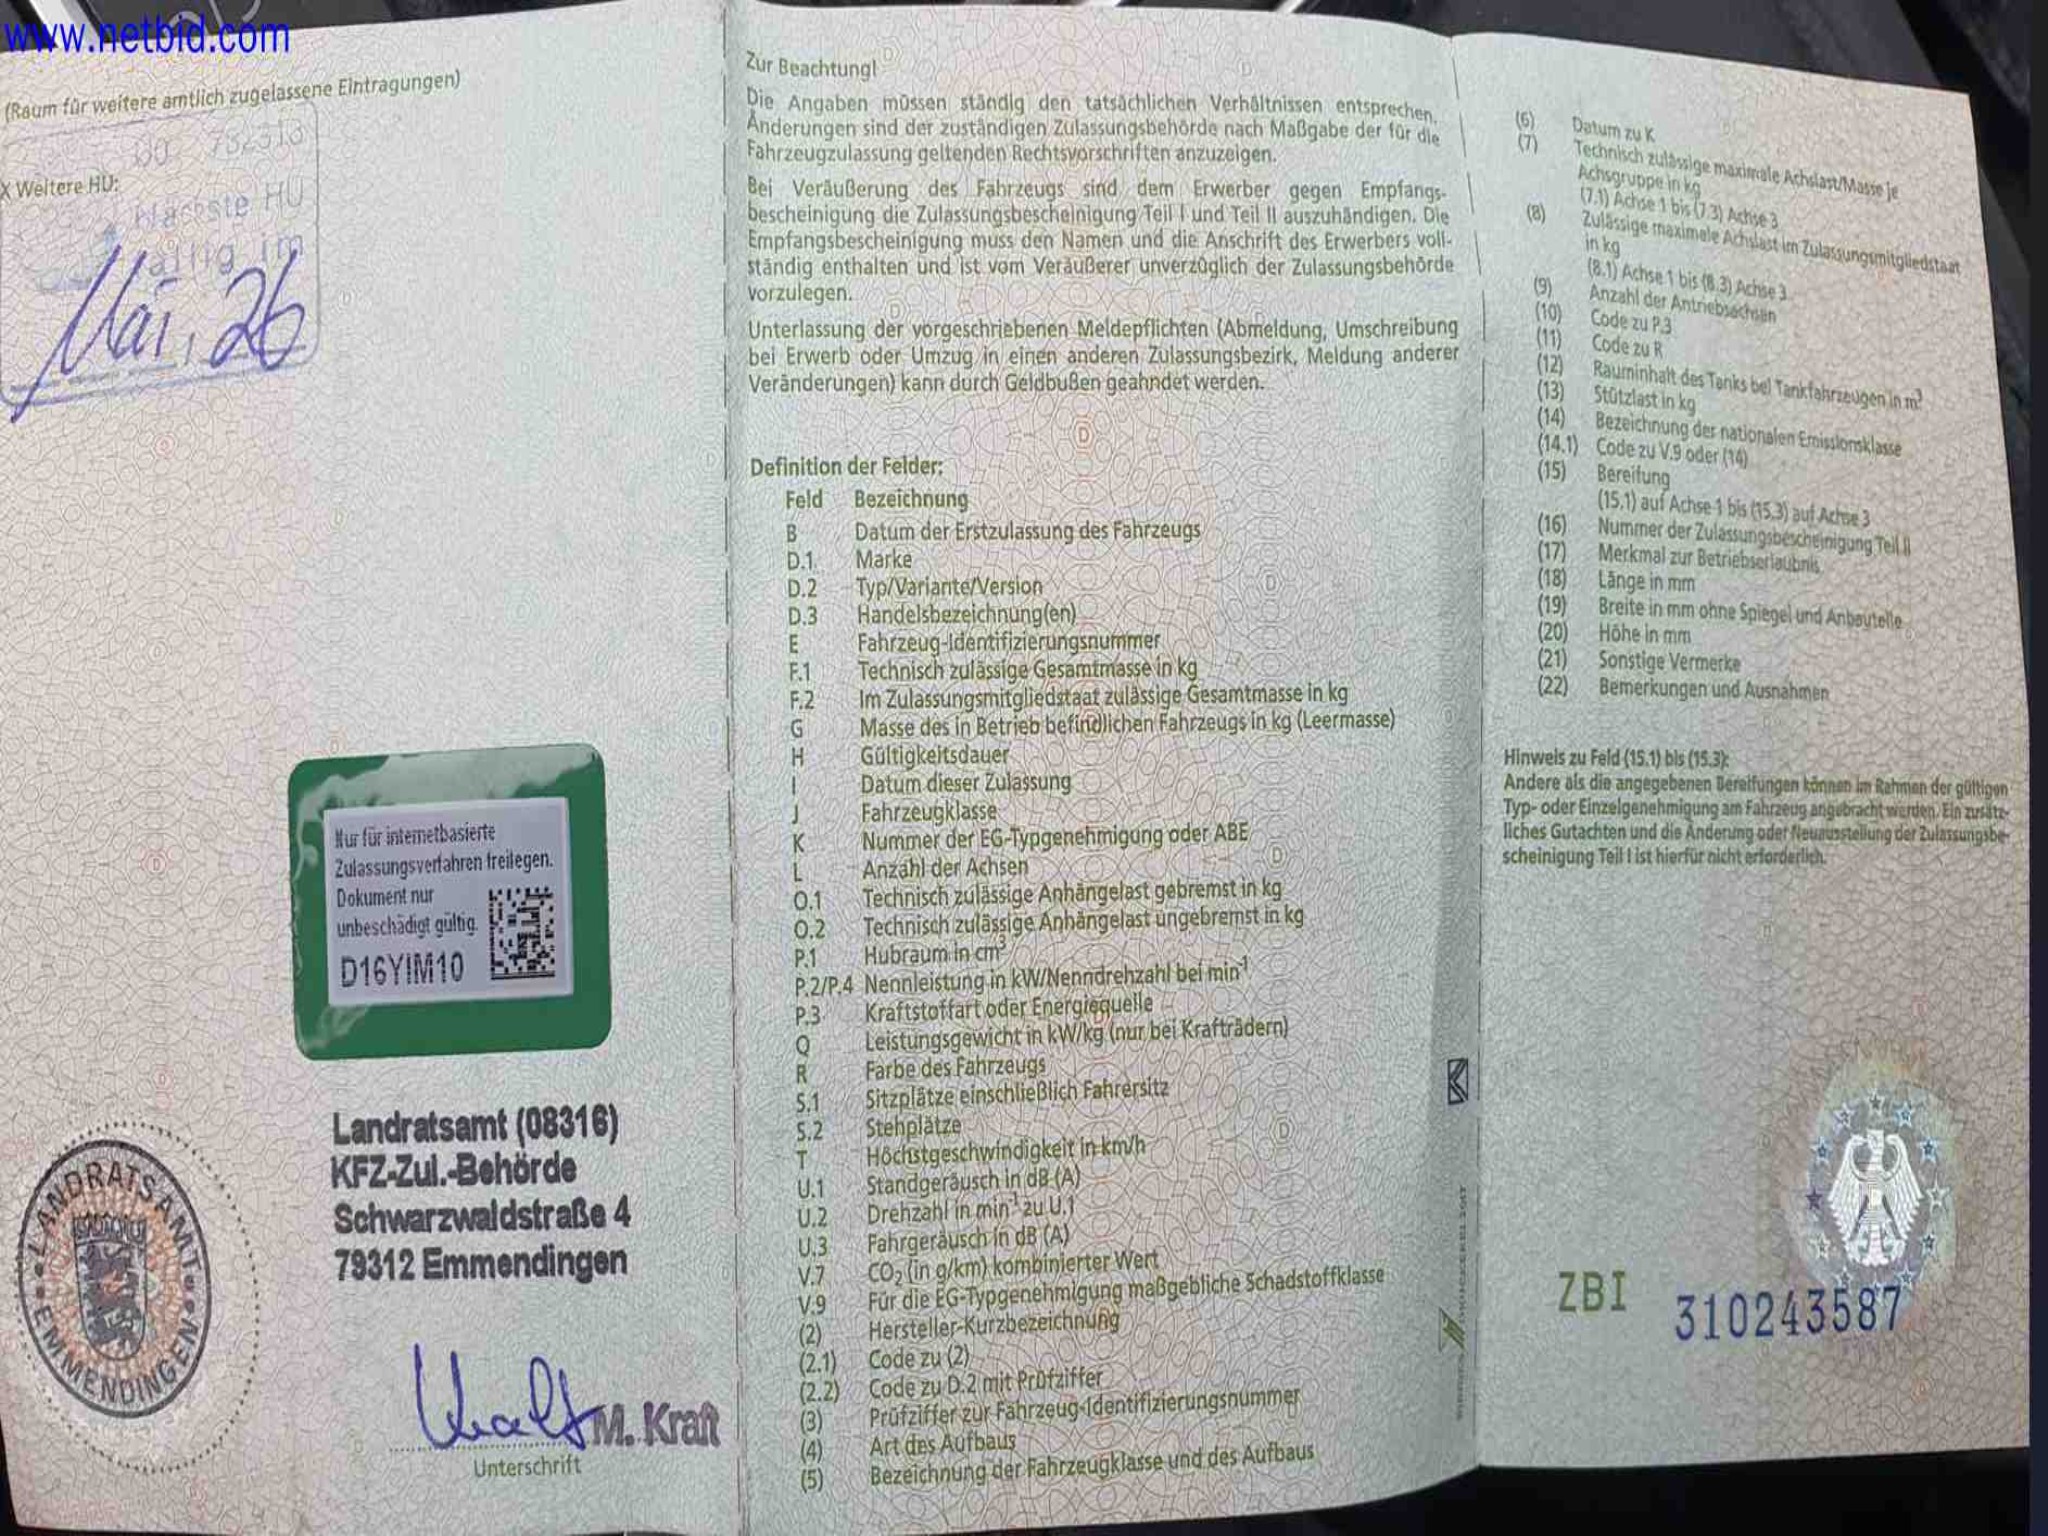 www.netbid.com
(Raum für weitere amtlich zugelassene Eintragungen)
732313
X Weitere HU:
Nächste HU
fällig im
Mai, 26
Nur für internetbasierte
Zulassungsverfahren freilegen.
Dokument nur
unbeschädigt gültig.
D16YIM10
Landratsamt (08316)
KFZ-Zul.-Behörde
Schwarzwaldstraße 4
79312 Emmendingen
LANDRATSAMT
EMMENDINGEN
M. Kraft
Unterschrift
Zur Beachtung!
Die Angaben müssen ständig den tatsächlichen Verhältnissen entsprechen.
Änderungen sind der zuständigen Zulassungsbehörde nach Maßgabe der für die
Fahrzeugzulassung geltenden Rechtsvorschriften anzuzeigen.
Bei Veräußerung des Fahrzeugs sind dem Erwerber gegen Empfangs-
bescheinigung die Zulassungsbescheinigung Teil I und Teil II auszuhändigen. Die
Empfangsbescheinigung muss den Namen und die Anschrift des Erwerbers voll-
ständig enthalten und ist vom Veräußerer unverzüglich der Zulassungsbehörde
vorzulegen.
Unterlassung der vorgeschriebenen Meldepflichten (Abmeldung, Umschreibung
bei Erwerb oder Umzug in einen anderen Zulassungsbezirk, Meldung anderer
Veränderungen) kann durch Geldbußen geahndet werden.
Definition der Felder:
Feld Bezeichnung
B Datum der Erstzulassung des Fahrzeugs
D.1 Marke
D.2 Typ/Variante/Version
D.3 Handelsbezeichnung(en)
E Fahrzeug-Identifizierungsnummer
F.1 Technisch zulässige Gesamtmasse in kg
F.2 Im Zulassungsmitgliedstaat zulässige Gesamtmasse in kg
G Masse des in Betrieb befindlichen Fahrzeugs in kg (Leermasse)
H Gültigkeitsdauer
I Datum dieser Zulassung
J Fahrzeugklasse
K Nummer der EG-Typgenehmigung oder ABE
L Anzahl der Achsen
O.1 Technisch zulässige Anhängelast gebremst in kg
O.2 Technisch zulässige Anhängelast ungebremst in kg
P.1 Hubraum in cm³
P.2/P.4 Nennleistung in kW/Nenndrehzahl bei min⁻¹
P.3 Kraftstoffart oder Energiequelle
Q Leistungsgewicht in kW/kg (nur bei Krafträdern)
R Farbe des Fahrzeugs
S.1 Sitzplätze einschließlich Fahrersitz
S.2 Stehplätze
T Höchstgeschwindigkeit in km/h
U.1 Standgeräusch in dB (A)
U.2 Drehzahl in min⁻¹ zu U.1
U.3 Fahrgeräusch in dB (A)
V.7 CO₂ (in g/km) kombinierter Wert
V.9 Für die EG-Typgenehmigung maßgebliche Schadstoffklasse
(2) Hersteller-Kurzbezeichnung
(2.1) Code zu (2)
(2.2) Code zu D.2 mit Prüfziffer
(3) Prüfziffer zur Fahrzeug-Identifizierungsnummer
(4) Art des Aufbaus
(5) Bezeichnung der Fahrzeugklasse und des Aufbaus
(6) Datum zu K
(7) Technisch zulässige maximale Achslast/Masse je
Achsgruppe in kg
(7.1) Achse 1 bis (7.3) Achse 3
(8) Zulässige maximale Achslast im Zulassungsmitgliedstaat
in kg
(8.1) Achse 1 bis (8.3) Achse 3
(9) Anzahl der Antriebsachsen
(10) Code zu P.3
(11) Code zu R
(12) Rauminhalt des Tanks bei Tankfahrzeugen in m³
(13) Stützlast in kg
(14) Bezeichnung der nationalen Emissionsklasse
(14.1) Code zu V.9 oder (14)
(15) Bereifung
(15.1) auf Achse 1 bis (15.3) auf Achse 3
(16) Nummer der Zulassungsbescheinigung Teil II
(17) Merkmal zur Betriebserlaubnis
(18) Länge in mm
(19) Breite in mm ohne Spiegel und Anbauteile
(20) Höhe in mm
(21) Sonstige Vermerke
(22) Bemerkungen und Ausnahmen
Hinweis zu Feld (15.1) bis (15.3):
Andere als die angegebenen Bereifungen können im Rahmen der gültigen
Typ- oder Einzelgenehmigung am Fahrzeug angebracht werden. Ein zusätz-
liches Gutachten und die Änderung oder Neuausstellung der Zulassungsbe-
scheinigung Teil I ist hierfür nicht erforderlich.
ZBI 310243587